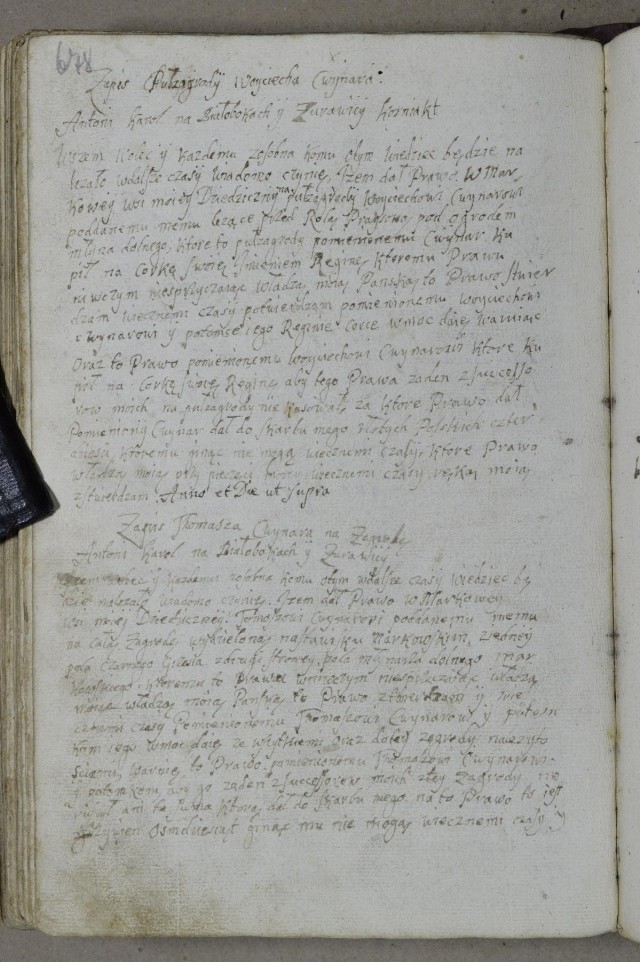 678
Zapis Pułzagrody Woyciecha Cwynara
Antoni Karol na Białobokach y Zurawicy Korniakt
Wszem wobec y każdemu zosobna komu otym wiedziec będzie na
leżało wdalsze czasy wiadomo czynię, Iżem dał Prawo W Mar
kowey wsi moiey Dziedziczny na pułzagrody Woyciechowi Cwynarowi
poddanemu memu leżące przed Rolą pod ogrodem
młyna dolnego, ktore to pułzagrody pomienionemi Cwynar ku
pił na Corkę swoię Imieniem Reginę, Ktoremu Prawu
ni wczym niesprzyczaiąc władzą moią Panską to Prawo stwier
dzam wiecznemi czasy potwierdzam pomienionemu Woyciechowi
Cwynarowi y potomstwu iego Reginie Corce wmoc daię waruiąc
Oraz to Prawo pomienionemu Woyciechowi Cwynarowi ktore ku
pił na Corkę swoię Reginę, aby tego Prawa żaden z Successo
row moich na pułzagrody nie kasował, za ktore Prawo dał
Pomieniony Cwynar dał do skarbu mego złotych Polskich czter
, ktoremu ginąc nie mogą wiecznemi czasy, ktore Prawo
władzą moią przy pieczęci wiecznemi czasy ręką moią
ztwierdzam. Anno et Die ut supra
Zapis Thomasza Cwynara na Zagrodę
Antoni Karol na Białobokach y Zurawicy
wobec y każdemu zosobna komu otym wdalsze czasy wiedziec bę
dzie należało wiadomo czynię, Iżem dał Prawo w Markowey
wsi moiey Dziedziczney Tomaszowi Cwynarowi poddanemu memu
na całą Zagrodę wydzieloną nastawisku Markowskim, ziedney
pola zdrugi strony pola młynarza dolnego Mar
kowskiego. Ktoremu to Prawu wniwczym władzą
władzą moią Panską to Prawo ztwierdzam y wie
cznemi czasy Pomienionemu Thomaszowi Cwynarowi y potom
kom iego wmoc daię ze wszytkiemi oraz dotey zagrody należyto
sciami, to Prawo pomienionemu Thomaszowi Cwynarowi
y potomkom aby go żaden z Successorow moich ztey zagrody nie
ani ta summa ktorą dał do skarbu mego, na to Prawo to iest
Osmdziesiąt ginąć mu nie mogą wiecznemi czasy y